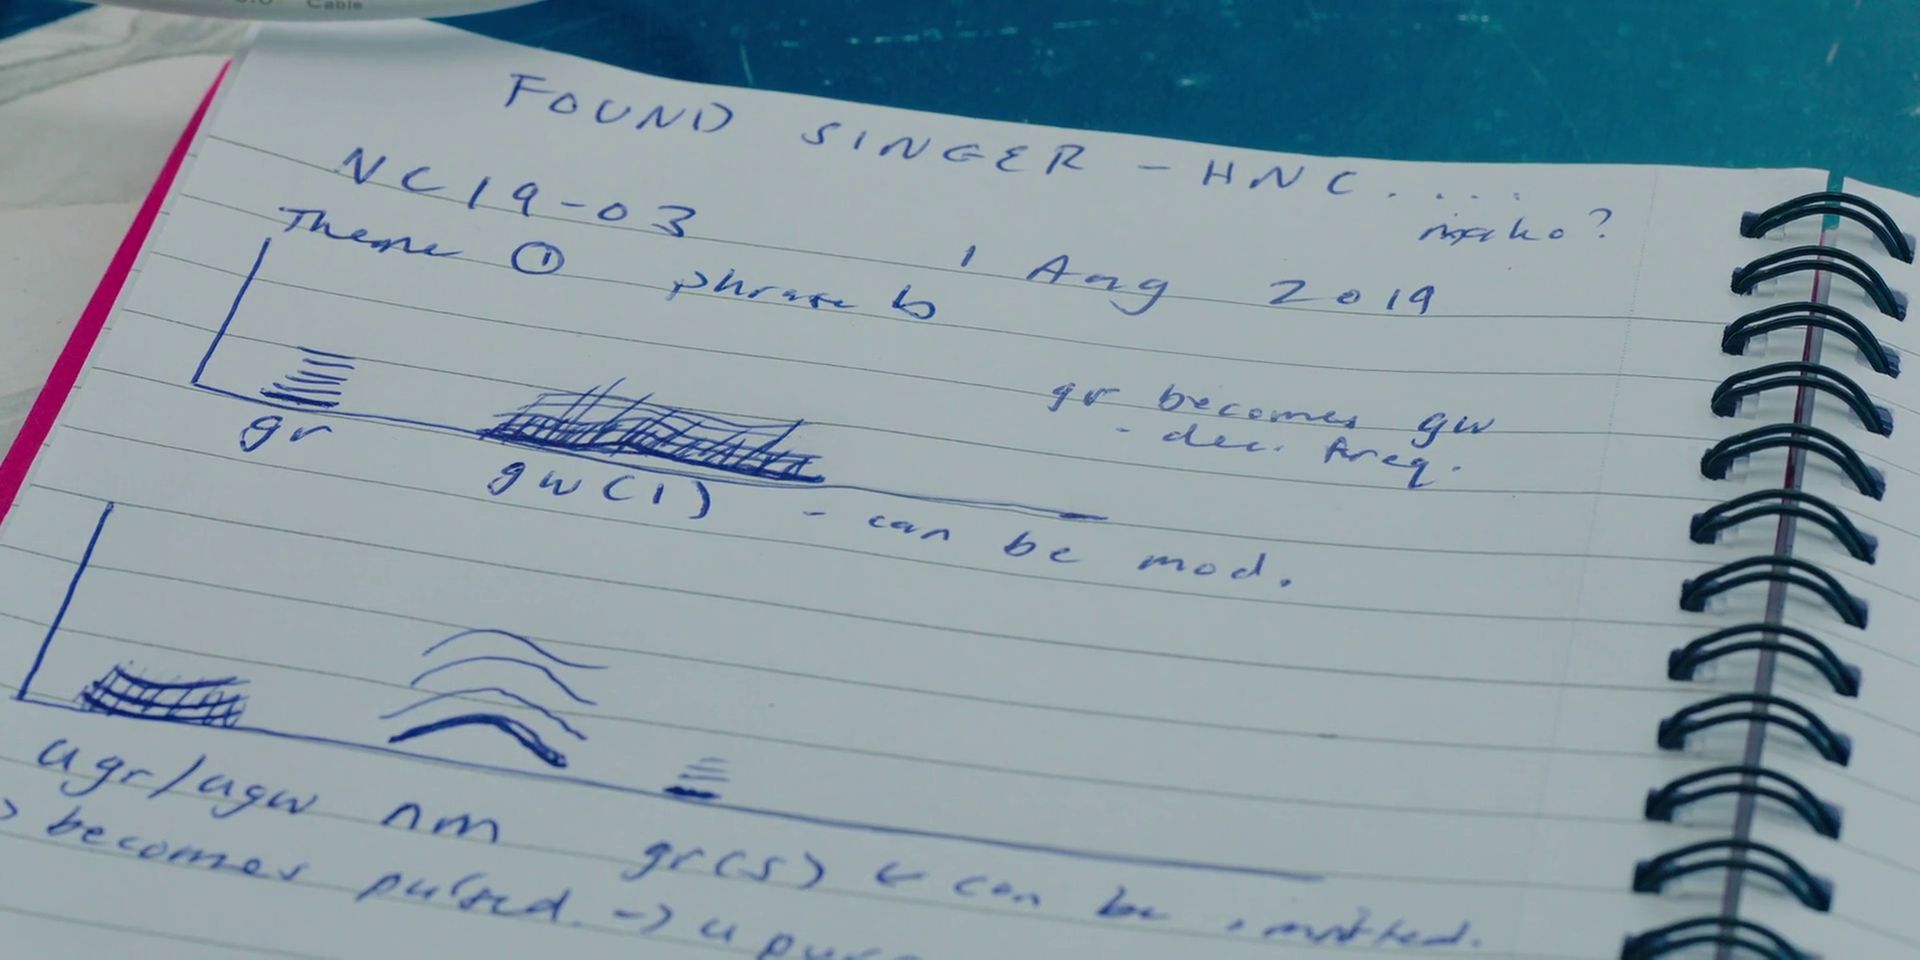 Cable
FOUND SINGER - HNC. . . . .
NC19-03
Theme ① phrase b 1 Aug 2019
gr becomes gw
- dec. freq.
gr
gw(1) - can be mod.
ugr/ugw nm gr(s) ← can be omitted.
becomes pulsed. → u purr